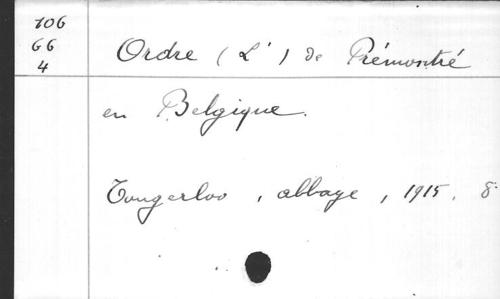 106
66
4
Ordre (L') de Prémontré
en Belgique.
Tongerloo, abbaye, 1915. 8°